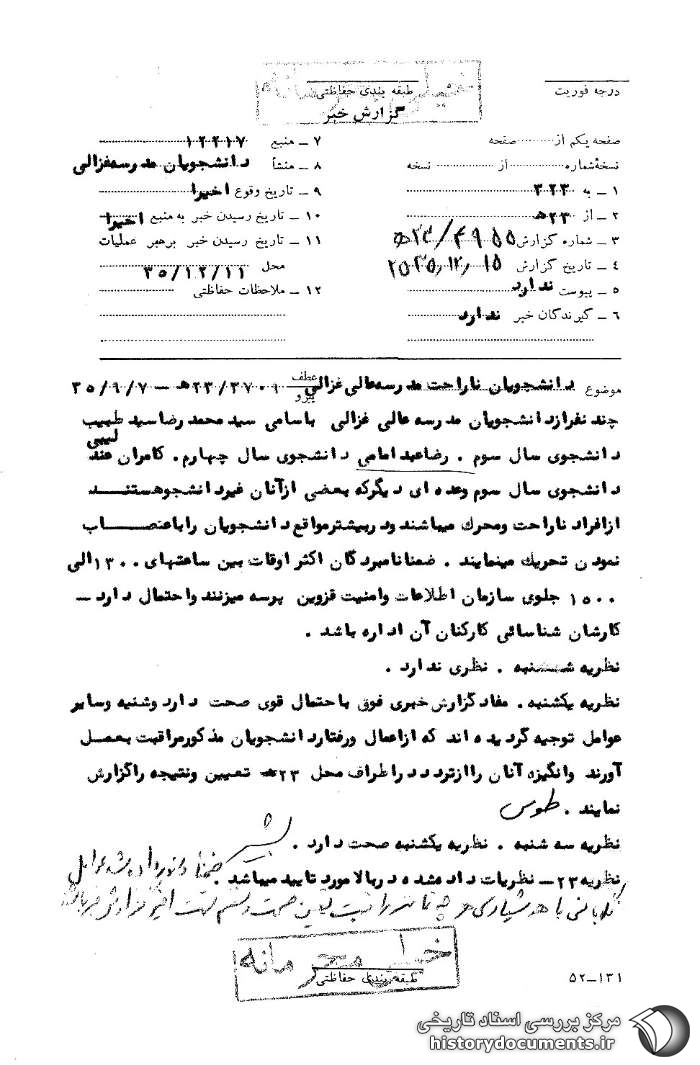 خیلی محرمانه
درجه فوریت
طبقه بندی حفاظتی
گزارش خبر
صفحه یکم از صفحه
نسخه شماره از نسخه
۱ - به ۳۲۳
۲ - از ۲۳ﻫ
۳ - شماره گزارش ۲۳/۴۹۵۵ﻫ
۴ - تاریخ گزارش ۲۵۳۵،۱۲،۱۵
۵ - پیوست ندارد
۶ - گیرندگان خبر ندارد
۷ - منبع ۱۲۲۱۷
۸ - منشأ دانشجویان مدرسه غزالی
۹ - تاریخ وقوع اخیرا
۱۰ - تاریخ رسیدن خبر به منبع اخیرا
۱۱ - تاریخ رسیدن خبر برهبر عملیات
محل ۳۵/۱۲/۱۱
۱۲ - ملاحظات حفاظتی
موضوع دانشجویان ناراحت مدرسه عالی غزالی عطف پیرو ۲۳/۳۷۰۹ﻫ - ۳۵/۹/۷
چند نفر از دانشجویان مدرسه عالی غزالی باسامی سید محمد رضا سید طبیب
دانشجوی سال سوم . رضا عبد امامی دانشجوی سال چهارم . کامران لبیبی
دانشجوی سال سوم وعده ای دیگر که بعضی از آنان غیر دانشجو هستند
از افراد ناراحت ومحرک میباشند ودر بیشتر مواقع دانشجویان را باعتصاب
نمودن تحریک مینمایند . ضمنا نامبردگان اکثر اوقات بین ساعتهای ۱۳۰۰ الی
۱۵۰۰ جلوی سازمان اطلاعات وامنیت قزوین پرسه میزنند واحتمال دارد -
کارشان شناسائی کارکنان آن اداره باشد .
نظریه شنبه . نظری ندارد .
نظریه یکشنبه . مفاد گزارش خبری فوق باحتمال قوی صحت دارد وشنبه وسایر
عوامل توجیه گردیده اند که از اعمال ورفتار دانشجویان مذکور مراقبت بعمل
آورند وانگیزه آنان را از تردد در اطراف محل ۲۳ﻫ تعیین ونتیجه را گزارش
نمایند . طوسی
نظریه سه شنبه . نظریه یکشنبه صحت دارد .
ضمنا دستور داده شد عوامل
نظریه ۲۳ﻫ - نظریات داده شده در بالا مورد تایید میباشد .
با هوشیاری هر چه تمامتر
خیلی محرمانه
طبقه بندی حفاظتی
۵۲-۱۳۱
مرکز بررسی اسناد تاریخی
historydocuments.ir